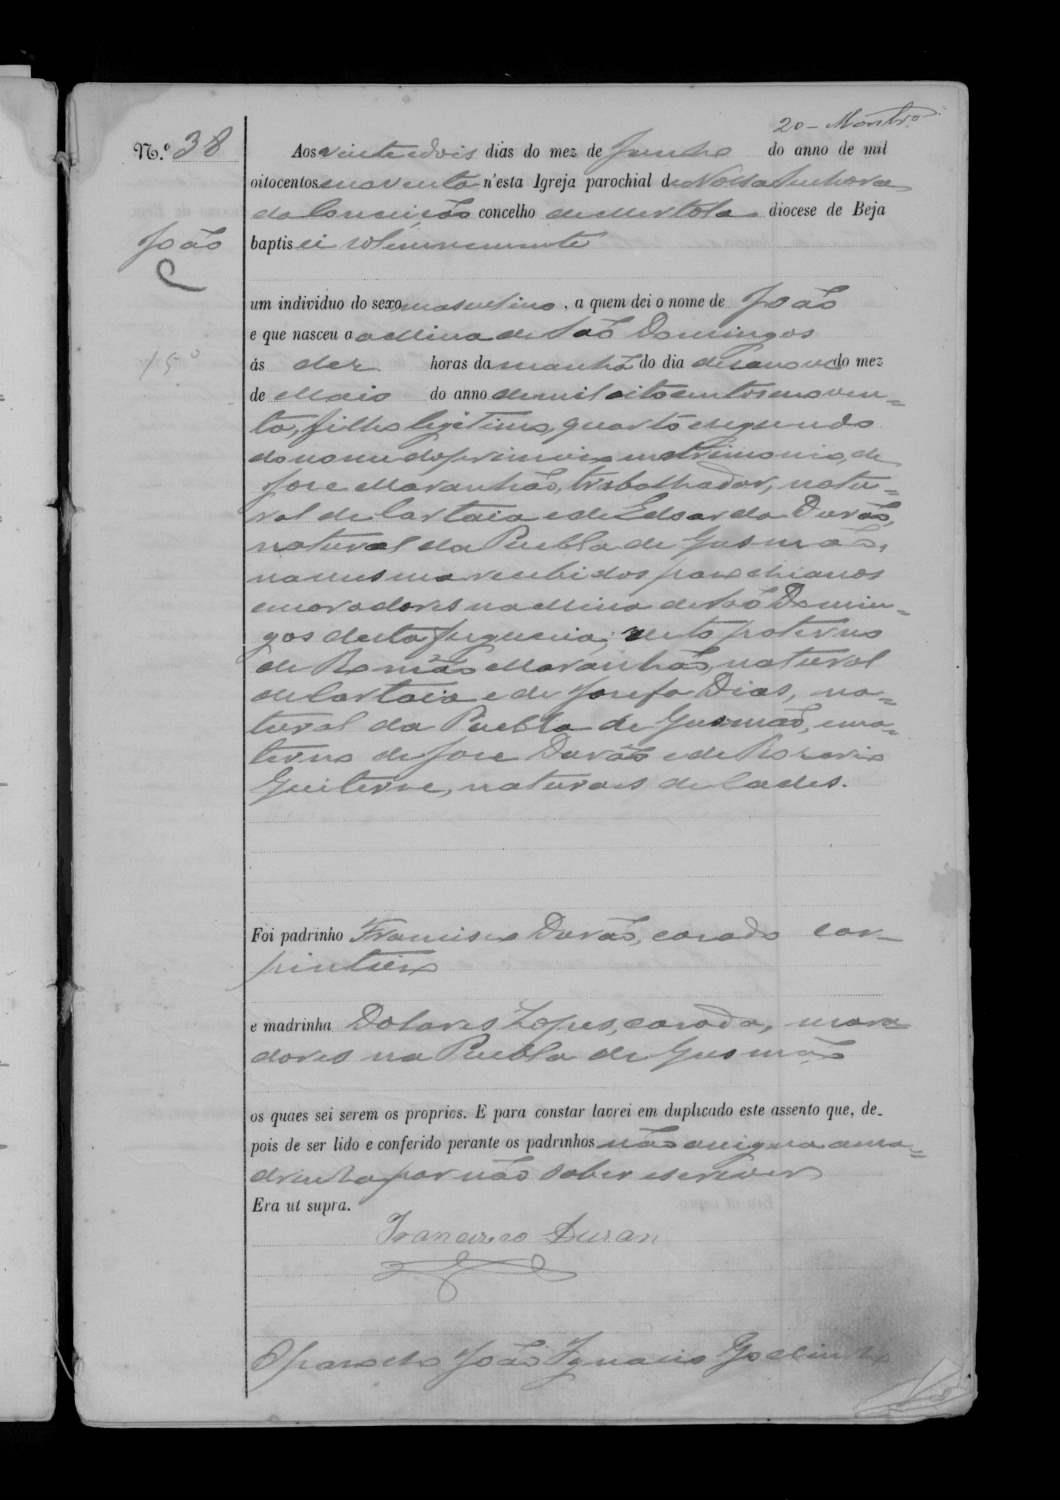 20-
N.º 38
Aos vinte e dois dias do mez de Junho do anno de mil
oitocentos e noventa n'esta Igreja parochial de Nossa Senhora
da Conceição concelho de Mertola diocese de Beja
João
baptisei solemnemente
um individuo do sexo masculino, a quem dei o nome de João
e que nasceu a a Mina de São Domingos
ás dez horas da manhã do dia desanove do mez
de Maio do anno de mil oito centos e noven=
ta, filho legitimo, quarto e segundo
do nome do primeiro matrimonio, de
Jose Maranhão, trabalhador, natu=
ral de Cartaia e de Edoarda Durão,
natural da Puebla de Gusmão,
na mesma recebidos parochianos
e moradores na Mina de São Domin=
gos desta freguesia; neto paterno
de Romão Maranhão, natural
de Cartaia e de Josefa Dias, na=
tural da Puebla de Gusmão, e ma=
terno de Jose Durão e de Rozaria
Guiterre, naturaes de Cades.
Foi padrinho Francisco Durão, casado car-
pinteiro
e madrinha Dolores Lopes, casada, mora
dores na Puebla de Gusmão
os quaes sei serem os proprios. E para constar lavrei em duplicado este assento que, de-
pois de ser lido e conferido perante os padrinhos não assigna a ma=
drinha por não saber escrever
Era ut supra.
Francisco Duran
O parocho João Ignacio Godinho